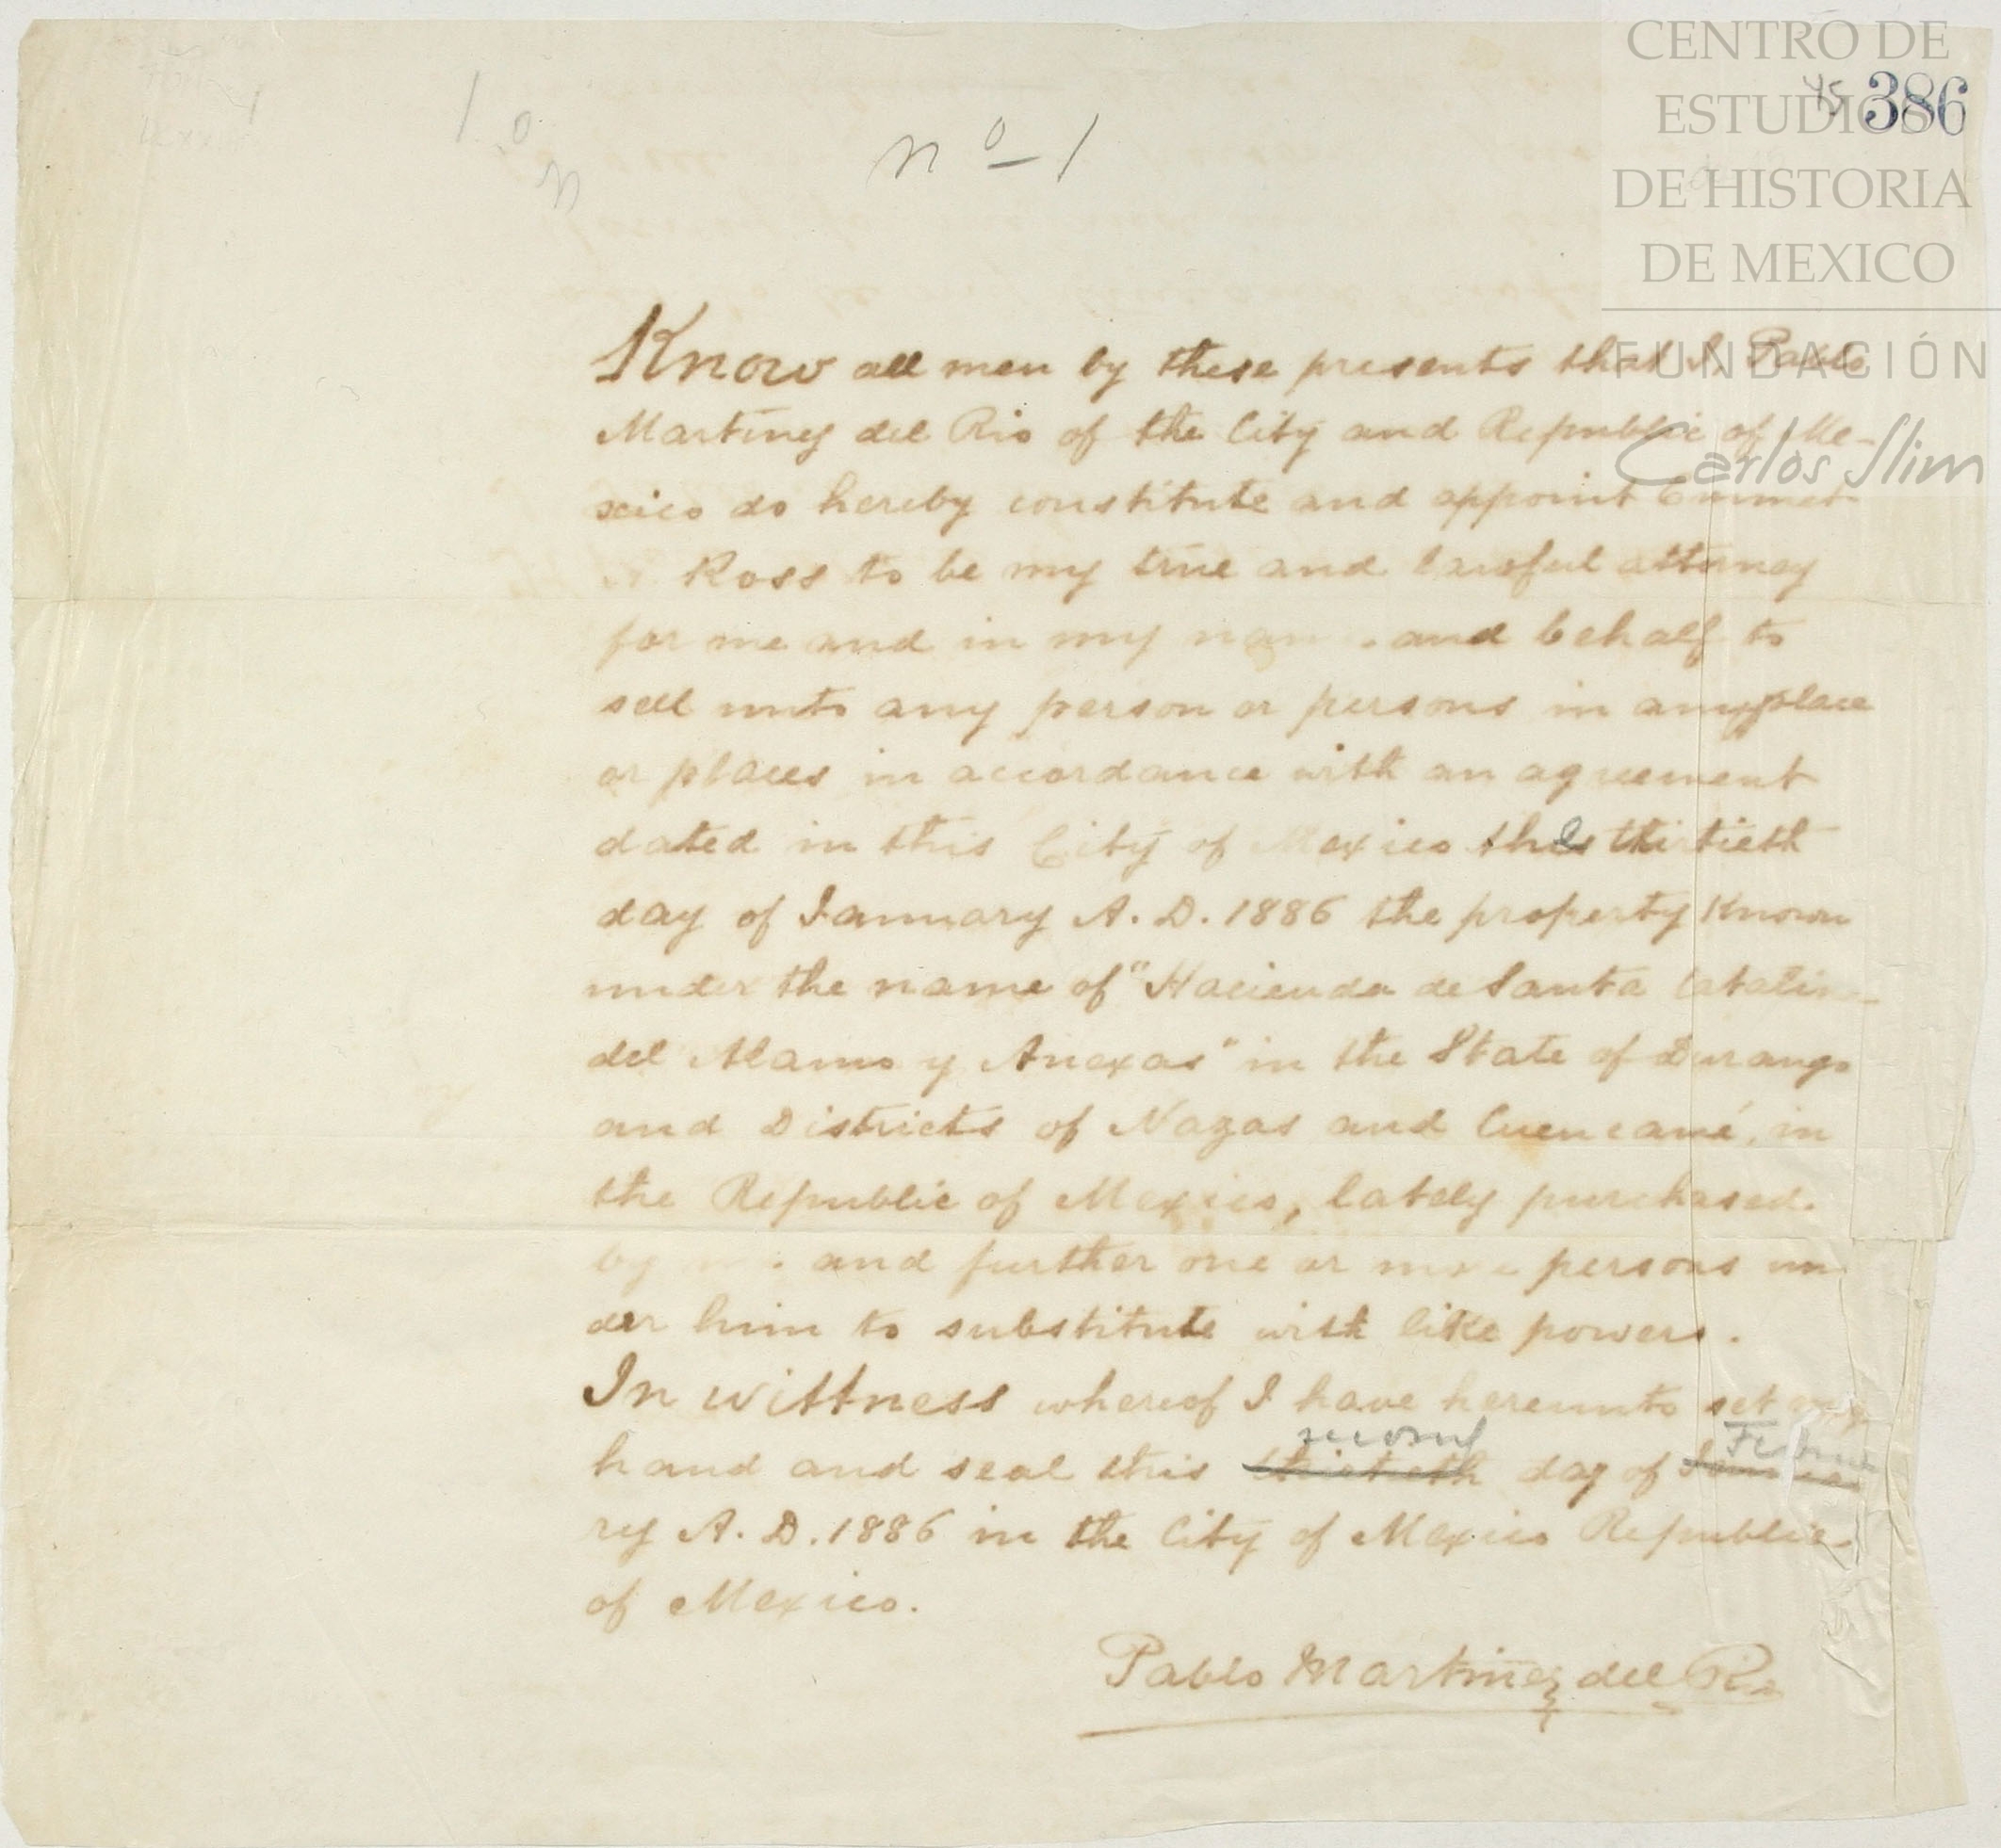 CENTRO DE
ESTUDIOS
DE HISTORIA
DE MEXICO
FUNDACIÓN
Carlos Slim
45 386
nº 1
Know all men by these presents that I, Pablo
Martinez del Rio of the City and Republic of Me-
xico do hereby constitute and appoint Emmet
Ross to be my true and lawful attorney
for me and in my and behalf to
sell unto any person or persons in any place
or places in accordance with an agreement
dated in this City of Mexico the thirtieth
day of January A. D. 1886 the property known
under the name of "Hacienda de Santa Catalina
del Alamo y Anexas" in the State of Durango
and Districts of Nazas and Cuencamé, in
the Republic of Mexico, lately purchased
by and further one or more persons un
der him to substitute with like powers.
In wittness whereof I have hereunto set my
second Februa
hand and seal this thirtieth day of Janua
ry A. D. 1886 in the City of Mexico Republic
of Mexico.
Pablo Martinez del Rio